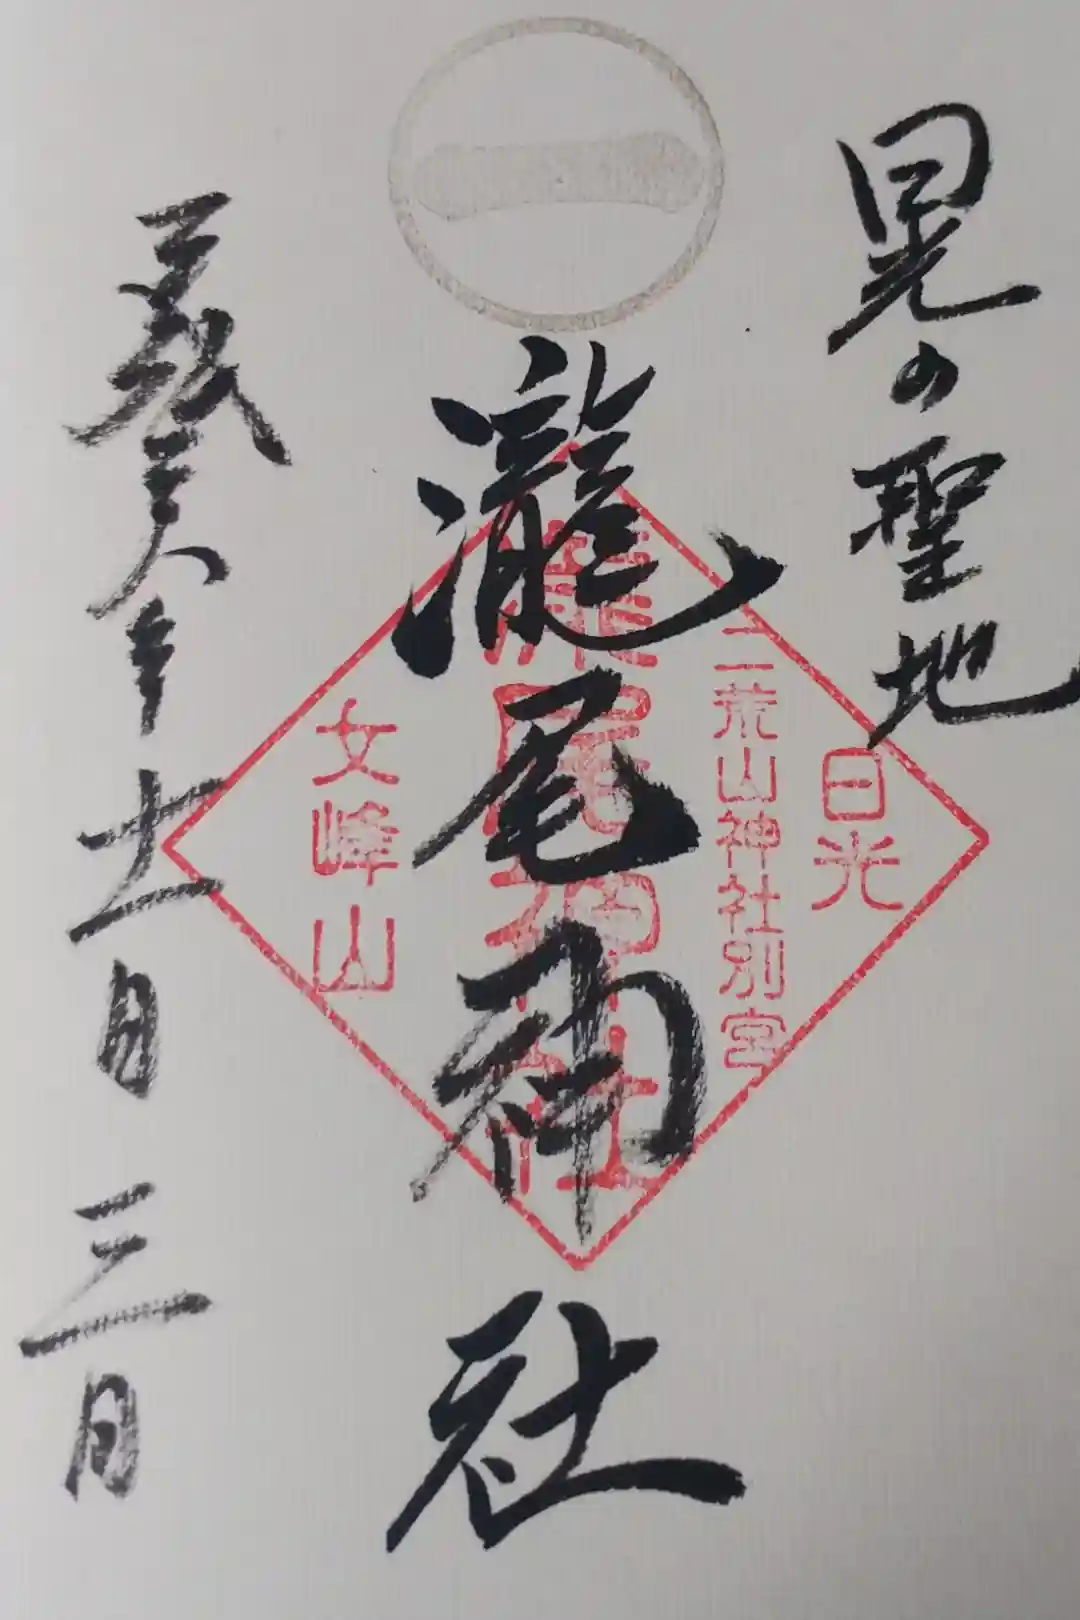 一
晃の聖地
日光
二荒山神社別宮
瀧尾神社
瀧尾神社
女峰山
平成二十八年十一月三日